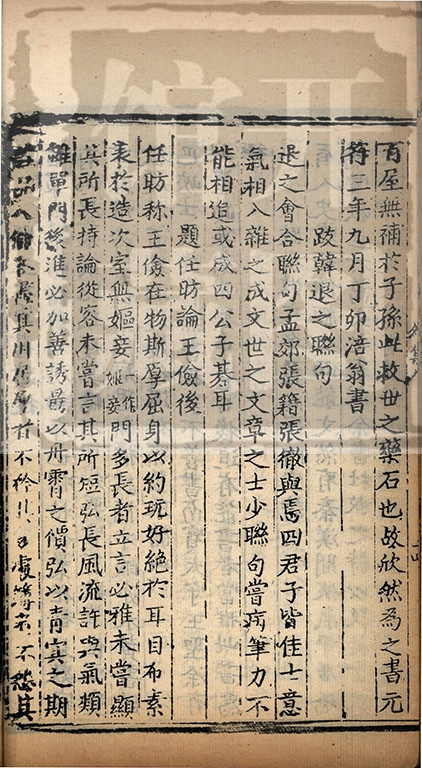 有屋無補於子孫此救世之藥石也故欣然為之書元
符三年九月丁卯涪翁書
跋韓退之聯句
退之會合聯句孟郊張籍張徹與焉四君子皆佳士意
氣相入雜之成文世之文章之士少聯句嘗病筆力不
能相追或成四公子棊耳
題任昉論王儉後
任昉称王儉在物斯厚屈身以約玩好絕於耳目布素
表於造次室無嫗妾一作姬妾門多長者立言必雅未嘗顯
其所長持論從容未嘗言其所短弘長風流許與氣類
雖單門後進必加善誘勗以丹霄之價弘以青冥之期
人倫其用居厚者不矜其 不怨其